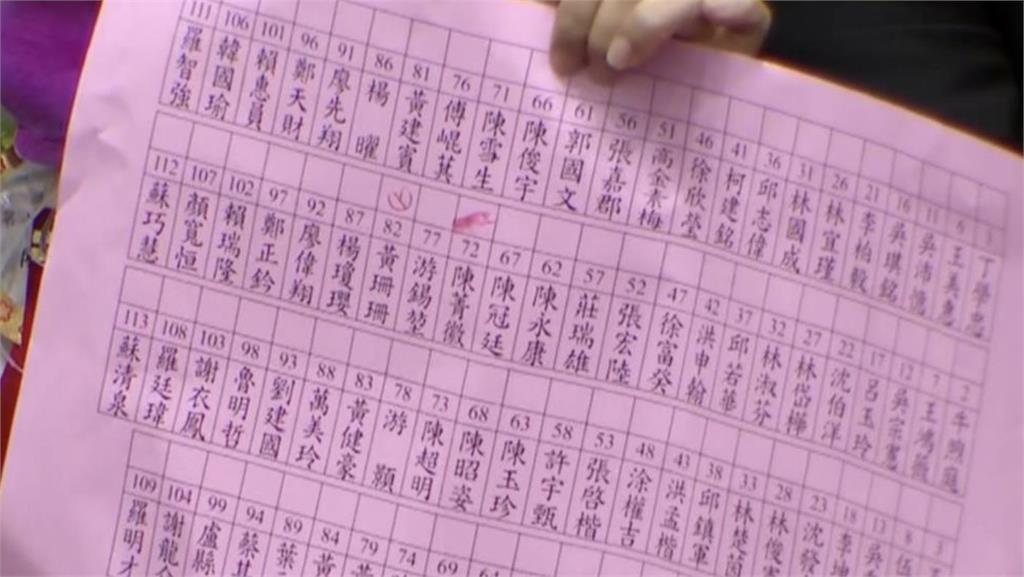 1 丁學忠
6 王美惠
11 吳沛憶
16 吳琪銘
21 李柏毅
26 林宜瑾
31 林國成
36 邱志偉
41 柯建銘
46 徐欣瑩
51 高金素梅
56 張嘉郡
61 郭國文
66 陳俊宇
71 陳雪生
76 傅崐萁
81 黃建賓
86 楊曜
91 廖先翔
96 鄭天財
101 賴惠員
106 韓國瑜
111 羅智強
2 牛煦庭
7 王鴻薇
12 吳宗憲
17 呂玉玲
22 沈伯洋
27 林岱樺
32 林淑芬
37 邱若華
42 洪申翰
47 徐富癸
52 張宏陸
57 莊瑞雄
62 陳永康
67 陳冠廷
72 陳菁徽
77 游錫堃
82 黃珊珊
87 楊瓊瓔
92 廖偉翔
97 鄭正鈐
102 賴瑞隆
107 顏寬恒
112 蘇巧慧
3
8 伍
13 吳
18 李坤
23 沈發
28 林俊憲
33 林楚茵
38 邱鎮軍
43 洪孟楷
48 涂權吉
53 張啓楷
58 許宇甄
63 陳玉珍
68 陳昭姿
73 陳超明
78 游顥
83 黃健豪
88 萬美玲
93 劉建國
98 魯明哲
103 謝衣鳳
108 羅廷瑋
113 蘇清泉
64
69
74
79 黃
84 黃
89 葉
94 蔡其
99 盧縣
104 謝龍
109 羅明才